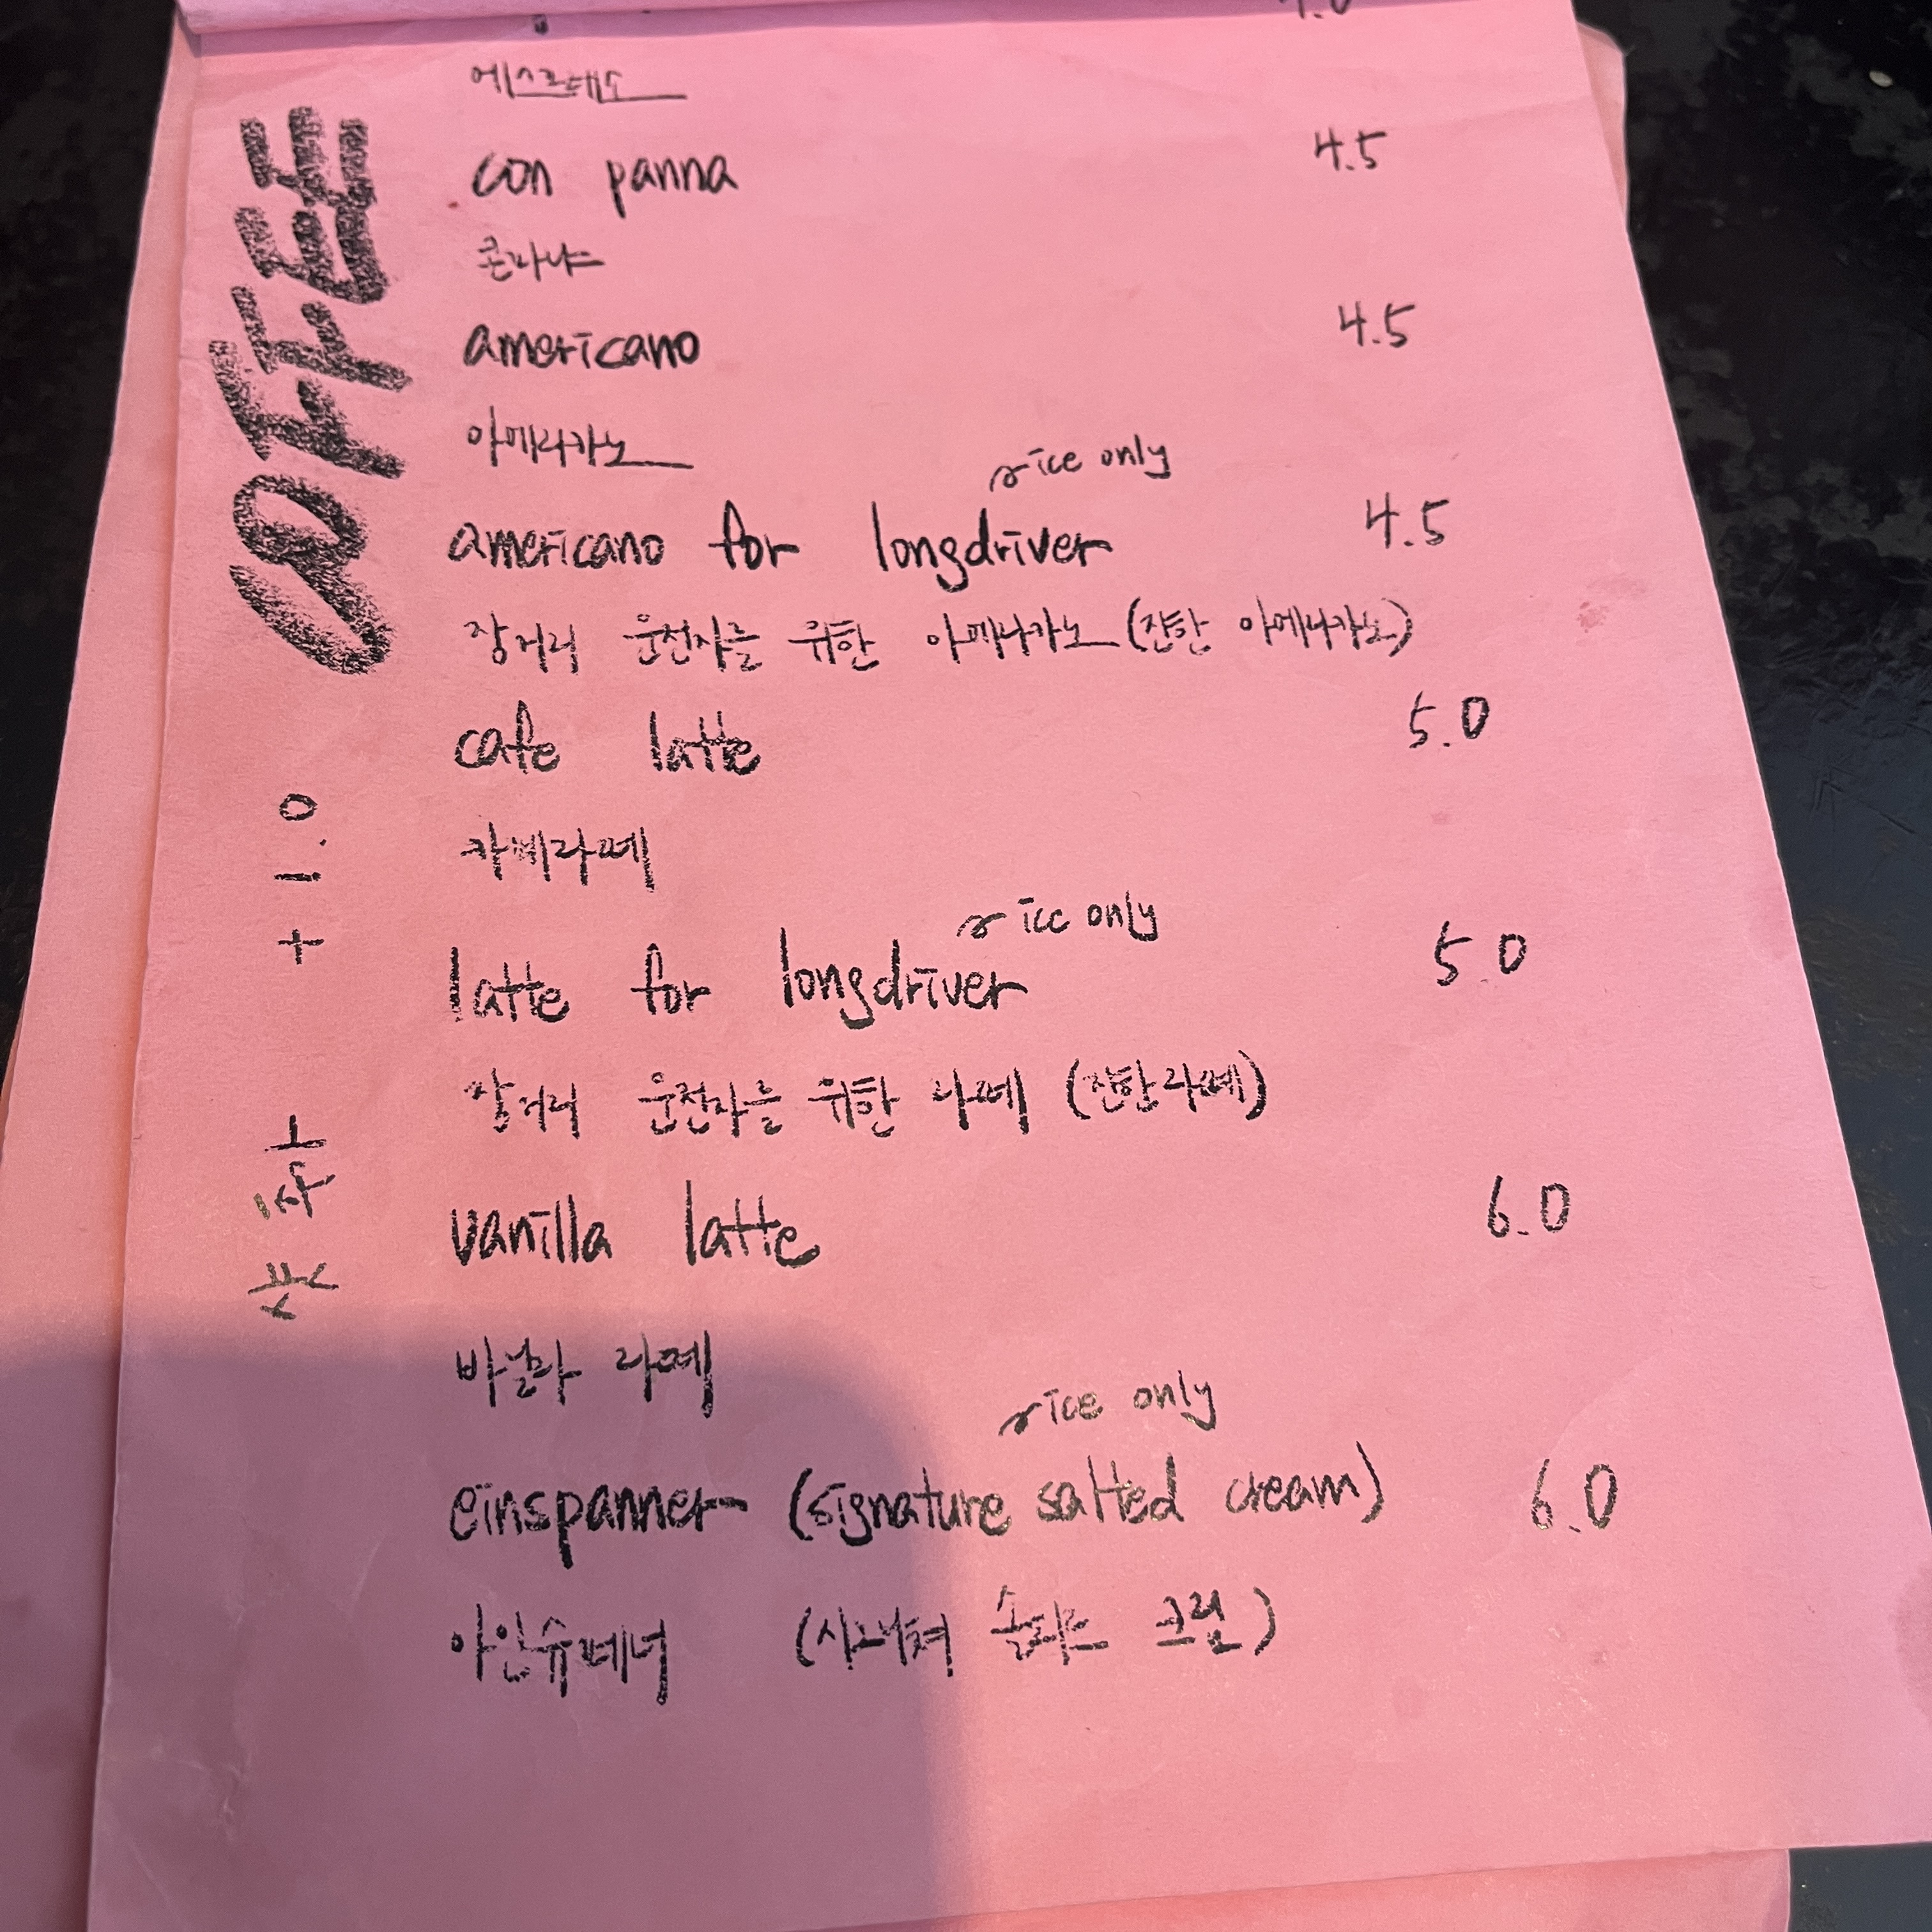 에스프레소
COFFEE
con panna 4.5
콘파냐
americano 4.5
아메리카노
ice only
americano for longdriver 4.5
장거리 운전자를 위한 아메리카노 (진한 아메리카노)
cafe latte 5.0
카페라떼
ice only
latte for longdriver 5.0
장거리 운전자를 위한 라떼 (진한라떼)
샷추가 + 1.0
vanilla latte 6.0
바닐라 라떼
ice only
einspanner (signature salted cream) 6.0
아인슈페너 (시그니쳐 솔티드 크림)